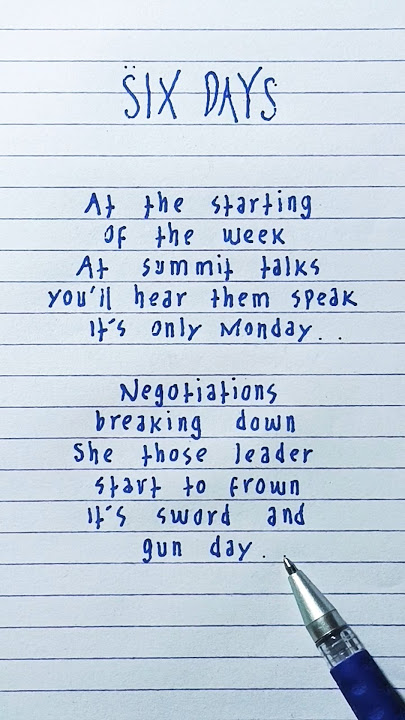 SIX DAYS
At the starting
Of the week
At summit talks
you'll hear them speak
It's only Monday...
Negotiations
breaking down
She those leader
start to frown
It's sword and
gun day.